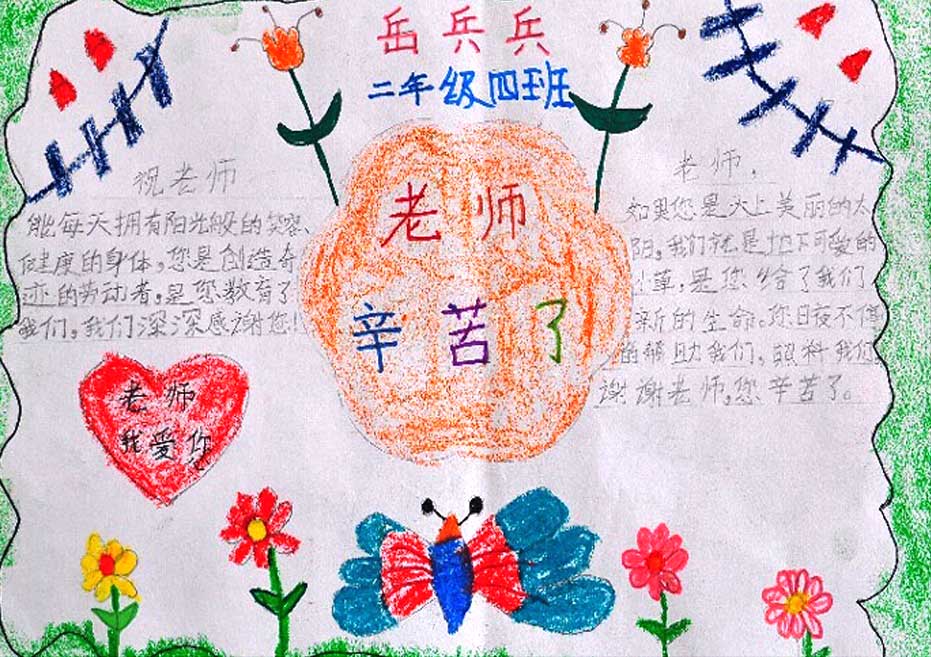 岳兵兵
二年级四班
祝老师
能每天拥有阳光般的笑容、
健康的身体，您是创造奇
迹的劳动者，是您教育了
我们，我们深深感谢您！
老师
辛苦了
老师，
如果您是天上美丽的太
阳，我们就是地下可爱的
小草，是您给了我们
新的生命。您日夜不停
的帮助我们，照料我们
谢谢老师，您辛苦了。
老师
我爱你